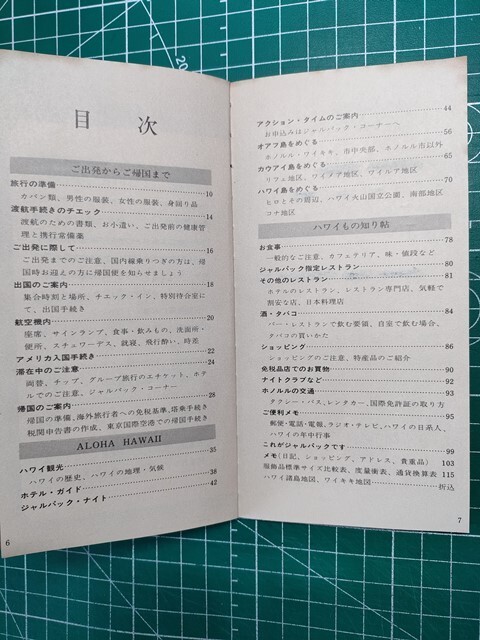 目次
ご出発からご帰国まで
旅行の準備 10
カバン類、男性の服装、女性の服装、身回り品
渡航手続きのチエック 14
渡航のための書類、お小遣い、ご出発前の健康管
理と携行常備薬
ご出発に際して 16
ご出発までのご注意、国内線乗りつぎの方は、帰
国時お迎えの方に帰国便を知らせましょう
出国のご案内 18
集合時刻と場所、チエック・イン、特別待合室に
て、出国手続き
航空機内 20
座席、サインランプ、食事・飲みもの、洗面所・
便所、スチュワーデス、就寝、飛行酔い、時差
アメリカ入国手続き 22
滞在中のご注意 24
両替、チップ、グループ旅行のエチケット、ホテ
ルでのご注意、ジャルパック・コーナー
帰国のご案内 28
帰国の準備、海外旅行者への免税基準、塔乗手続き
税関申告書の作成、東京国際空港での帰国手続き
ALOHA HAWAII
ハワイ観光 35
ハワイの歴史、ハワイの地理・気候
ホテル・ガイド 38
ジャルパック・ナイト 42
6
アクション・タイムのご案内 44
お申込みはジャルパック・コーナーへ
オアフ島をめぐる 56
ホノルル・ワイキキ、市中央部、ホノルル市以外
カウアイ島をめぐる 65
リフェ地区、ワイメア地区、ワイルア地区
ハワイ島をめぐる 70
ヒロとその周辺、ハワイ火山国立公園、南部地区
コナ地区
ハワイもの知り帖
お食事 78
一般的なご注意、カフェテリア、味・値段など
ジャルパック指定レストラン 80
その他のレストラン 81
ホテルのレストラン、レストラン専門店、気軽で
割安な店、日本料理店
酒・タバコ 84
バー・レストランで飲む要領、自室で飲む場合、
タバコの買いかた
ショッピング 86
ショッピングのご注意、特産品のご紹介
免税品店でのお買物 90
ナイトクラブなど 92
ホノルルの交通 93
タクシー・バス、レンタカー、国際免許証の取り方
ご便利メモ 95
郵便・電話・電報、ラジオ・テレビ、ハワイの日系人、
ハワイの年中行事
これがジャルパックです 99
メモ(日記、ショッピング、アドレス、貴重品) 103
服飾品標準サイズ比較表、度量衡表、通貨換算表 115
ハワイ諸島地図、ワイキキ地図 折込
7